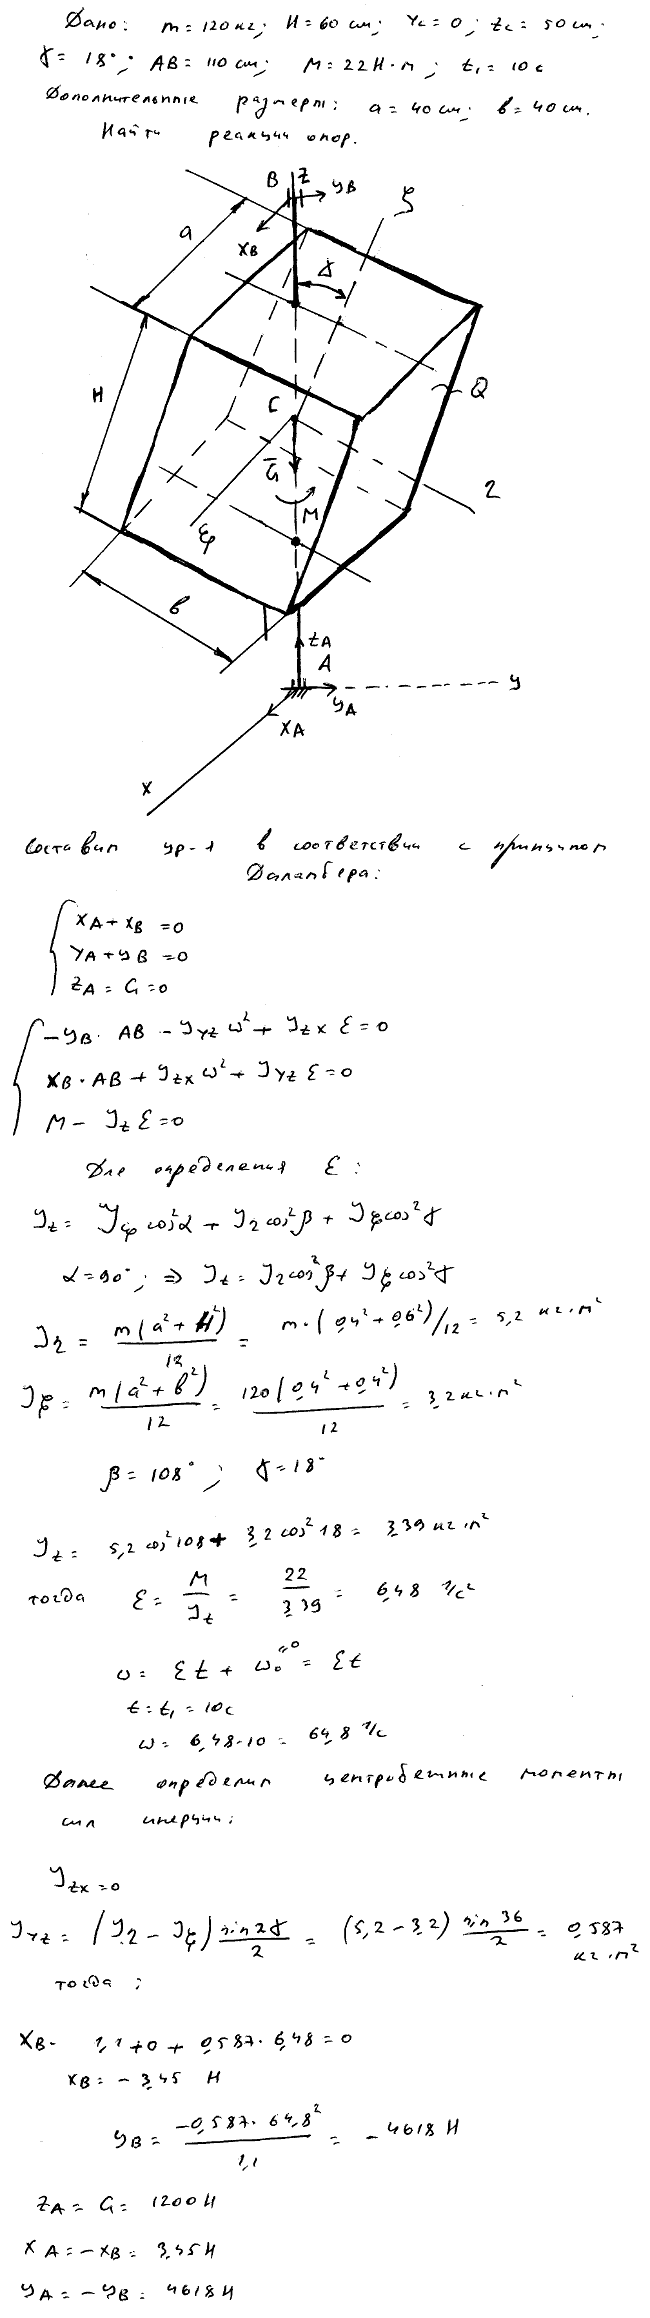 Дано: m=120кг; H=60 см; Yc=0; Zc=50см;
γ=18°; AB=110см; M=22Н·м; t₁=10с
Дополнительные размеры: a=40см; в=40см.
Найти реакции опор.
B Z yB ζ
a xB γ
H
C Q
G̅
M 2
ξ
в
zA
A y
yA
xA
x
Составим ур-я в соответствии с принципом
Даламбера:
XA+XB=0
YA+yB=0
ZA=G=0
-yB·AB-JYZ ω²+JZX ε=0
XB·AB+JZX ω²+JYZ ε=0
M-Jz ε=0
Для определения ε:
Jz=Jφ cos²α+J2cos²β+Jξcos²γ
α=90°; ⇒ Jz=J2cos²β+Jξcos²γ
J2=m(a²+H²)/12=m·(0,4²+0,6²)/12=5,2 кг·м²
Jξ=m(a²+в²)/12=120(0,4²+0,4²)/12=3,2кг·м²
β=108°; γ=18°
Jz=5,2cos²108+3,2cos²18=3,39кг·м²
тогда ε=M/Jz=22/3,39=6,48 1/с²
ω=εt+ω₀=εt =0
t=t₁=10с
ω=6,48·10=64,8 1/с
Далее определим центробежные моменты
сил инерции:
Jzx=0
JYZ=(J2-Jξ)sin2γ/2=(5,2-3,2)sin36/2=0,587
кг·м²
тогда:
XB·1,1+0+0,587·6,48=0
XB=-3,45 Н
yB=-0,587·64,8²/1,1=-4618Н
ZA=G=1200Н
XA=-XB=3,45Н
yA=-yB=4618Н